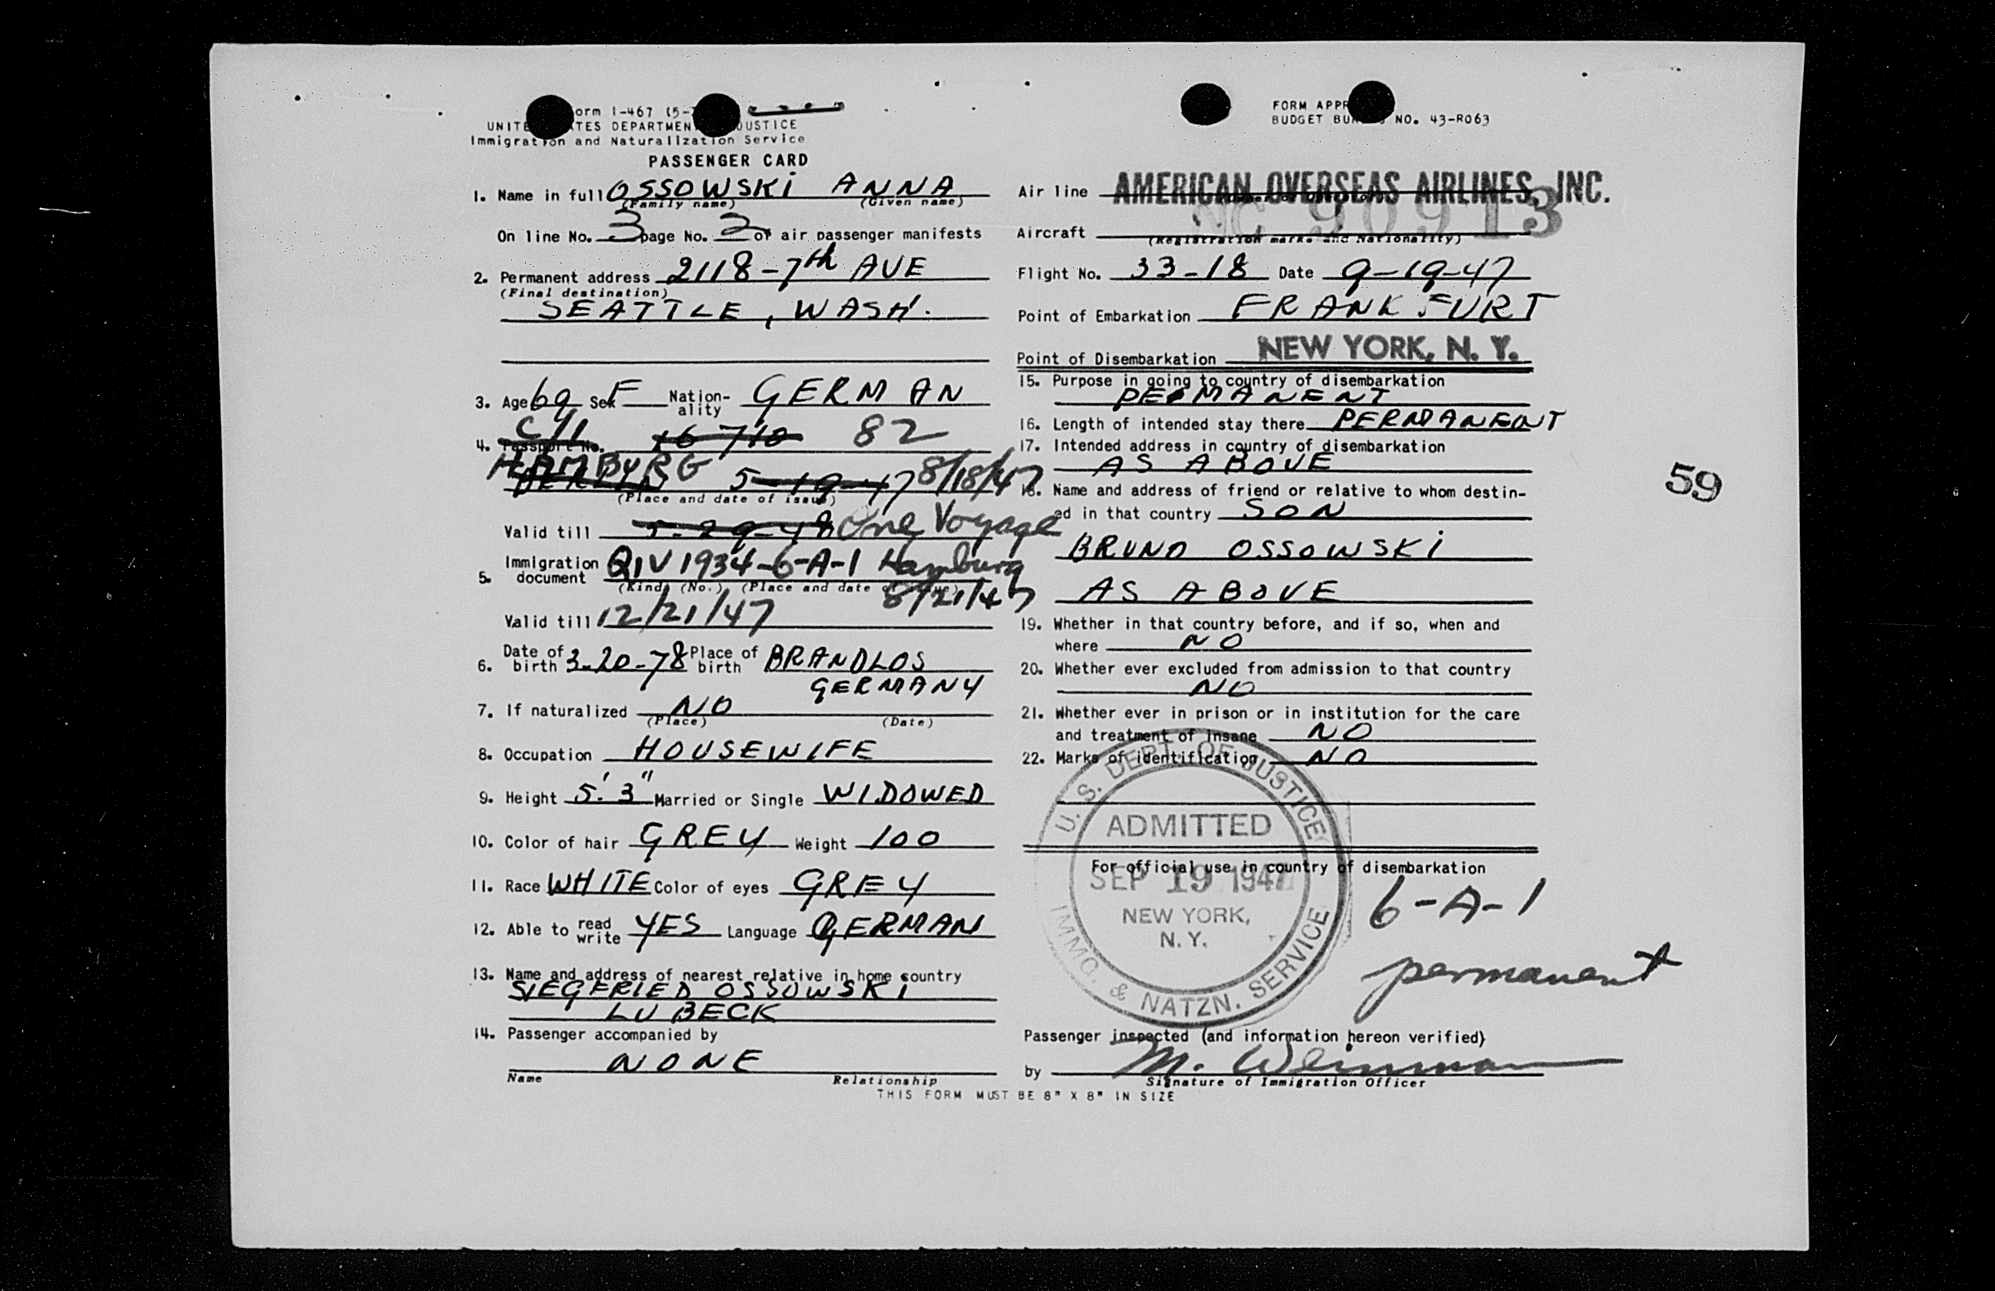 Form I-467 (5-
UNITED STATES DEPARTMENT JUSTICE
Immigration and Naturalization Service
PASSENGER CARD
1. Name in full OSSOWSKI ANNA
(Family name) (Given name)
On line No. 3 page No. 2 of air passenger manifests
2. Permanent address 2118-7th AVE
(Final destination)
SEATTLE, WASH.
3. Age 69 Sex F Nationality GERMAN
4. Passport No. C/I 16710 82
HAMBURG BERLIN 5-19-47 8/18/47
(Place and date of issue)
Valid till 5-29-48 One Voyage
5. Immigration document QIV 1934-6-A-1 Hamburg
(Kind) (No.) (Place and date of issue) 8/21/47
Valid till 12/21/47
6. Date of birth 3-20-78 Place of birth BRANDLOS
GERMANY
7. If naturalized NO
(Place) (Date)
8. Occupation HOUSEWIFE
9. Height 5'3" Married or Single WIDOWED
10. Color of hair GREY Weight 100
11. Race WHITE Color of eyes GREY
12. Able to read write YES Language GERMAN
13. Name and address of nearest relative in home country
SIEGFRIED OSSOWSKI
LUBECK
14. Passenger accompanied by
NONE
Name Relationship
FORM APPR
BUDGET BUREAU NO. 43-R063
Air line AMERICAN OVERSEAS AIRLINES, INC.
Aircraft NC 90913
(Registration marks and Nationality)
Flight No. 33-18 Date 9-19-47
Point of Embarkation FRANKFURT
Point of Disembarkation NEW YORK, N. Y.
15. Purpose in going to country of disembarkation
PERMANENT
16. Length of intended stay there PERMANENT
17. Intended address in country of disembarkation
AS ABOVE
18. Name and address of friend or relative to whom destin-
ed in that country SON
BRUNO OSSOWSKI
AS ABOVE
19. Whether in that country before, and if so, when and
where NO
20. Whether ever excluded from admission to that country
NO
21. Whether ever in prison or in institution for the care
and treatment of insane NO
22. Marks of identification NO
For official use in country of disembarkation
U. S. DEPT. OF JUSTICE
ADMITTED
SEP 19 1947
NEW YORK,
N. Y.
IMMG. & NATZN. SERVICE
6-A-1
permanent
Passenger inspected (and information hereon verified)
by M. Weinman
Signature of Immigration Officer
THIS FORM MUST BE 8" X 8" IN SIZE
59